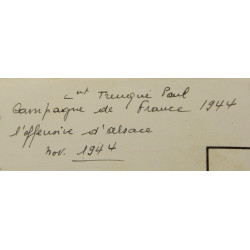 Lnt Trenqué Paul
Campagne de France 1944
l'offensive d'alsace
nov. 1944